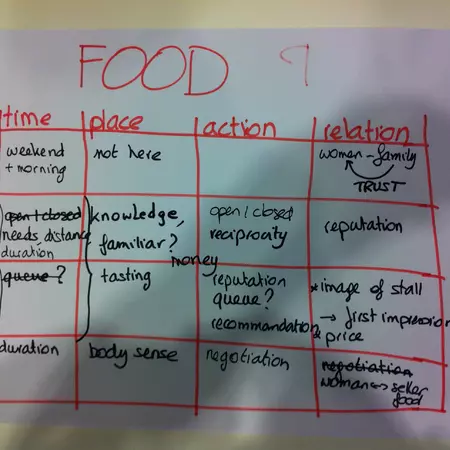 FOOD ?
time place action relation
weekend
+ morning
not here
women - family
TRUST
open/closed
needs, distance
duration
knowledge,
familiar?
money
open/closed
reciprocity
reputation
queue ?
tasting
reputation
queue?
recommandation
* image of stall
→ first impression
* price
duration
body sense
negotiation
negotiation
woman ↔ seller
food